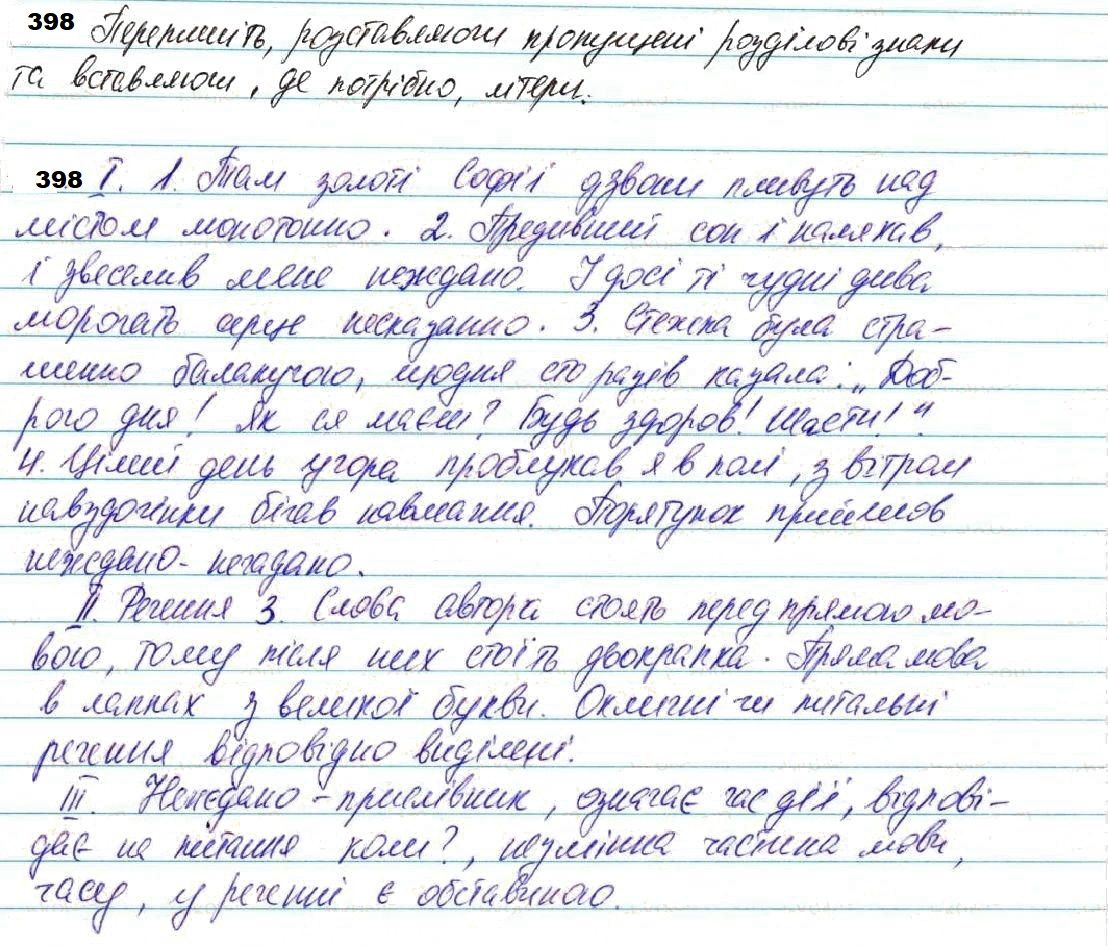 398 Перепишіть, розставляючи пропущені розділові знаки
та вставляючи, де потрібно, літери.
398 I. 1. Там золоті Софії дзвони пливуть над
містом монотонно. 2. Предивний сон і налякав,
і звеселив мене неждано. І досі ті чудні дива
морочать серце несказанно. 3. Стежка була стра-
шенно балакучою, щодня сто разів казала: „Доб-
рого дня! Як ся маєш? Будь здоров! Щасти!"
4. Цілий день учора проблукав я в полі, з вітром
навздогінки бігав навмання. Порятунок прийшов
неждано-негадано.
II. Речення 3. Слова автора стоять перед прямою мо-
вою, тому після них стоїть двокрапка. Пряма мова
в лапках з великої букви. Окличні чи питальні
речення відповідно виділені.
III. Неждано - прислівник, означає час дії, відпові-
дає на питання коли?, незмінна частина мови,
часу, у реченні є обставиною.